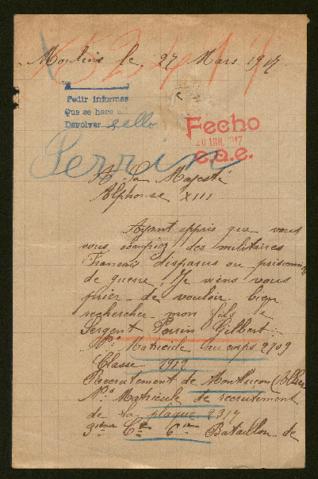 Moulins le, 27 Mars 1917
Pedir informes
Que se hace
Devolver sello
Fecho
c.a.e.
Perrin
A Sa Majesté
Alphonse XIII
Ayant appris que vous
vous occupiez des militaires
Francais disparus ou prisonniers
de guerre. Je viens vous
prier de vouloir bien
rechercher mon fils le
Sergent Perrin Gilbert
No Matricule au corps 2709
Classe 1912
Recrutement de Montluçon (Allier
No Matricule de recrutement
de la plaque 2317
Cie 6me Bataillon de